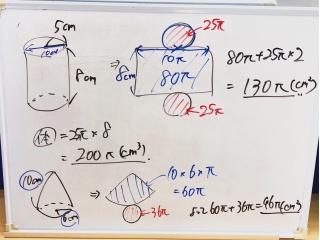 5cm
10cm
8cm
⇒
25π
10π
8cm
80π
25π
80π+25π×2
= 130π(cm²)
体 = 25π×8
= 200π(cm³)
10cm
10cm
⇒
10×6×π
= 60π
36π
60π+36π=96π(cm²)